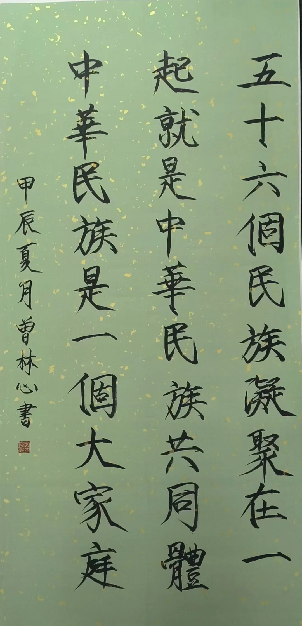 五十六個民族凝聚在一
起就是中華民族共同體
中華民族是一個大家庭
甲辰夏月曾林心書